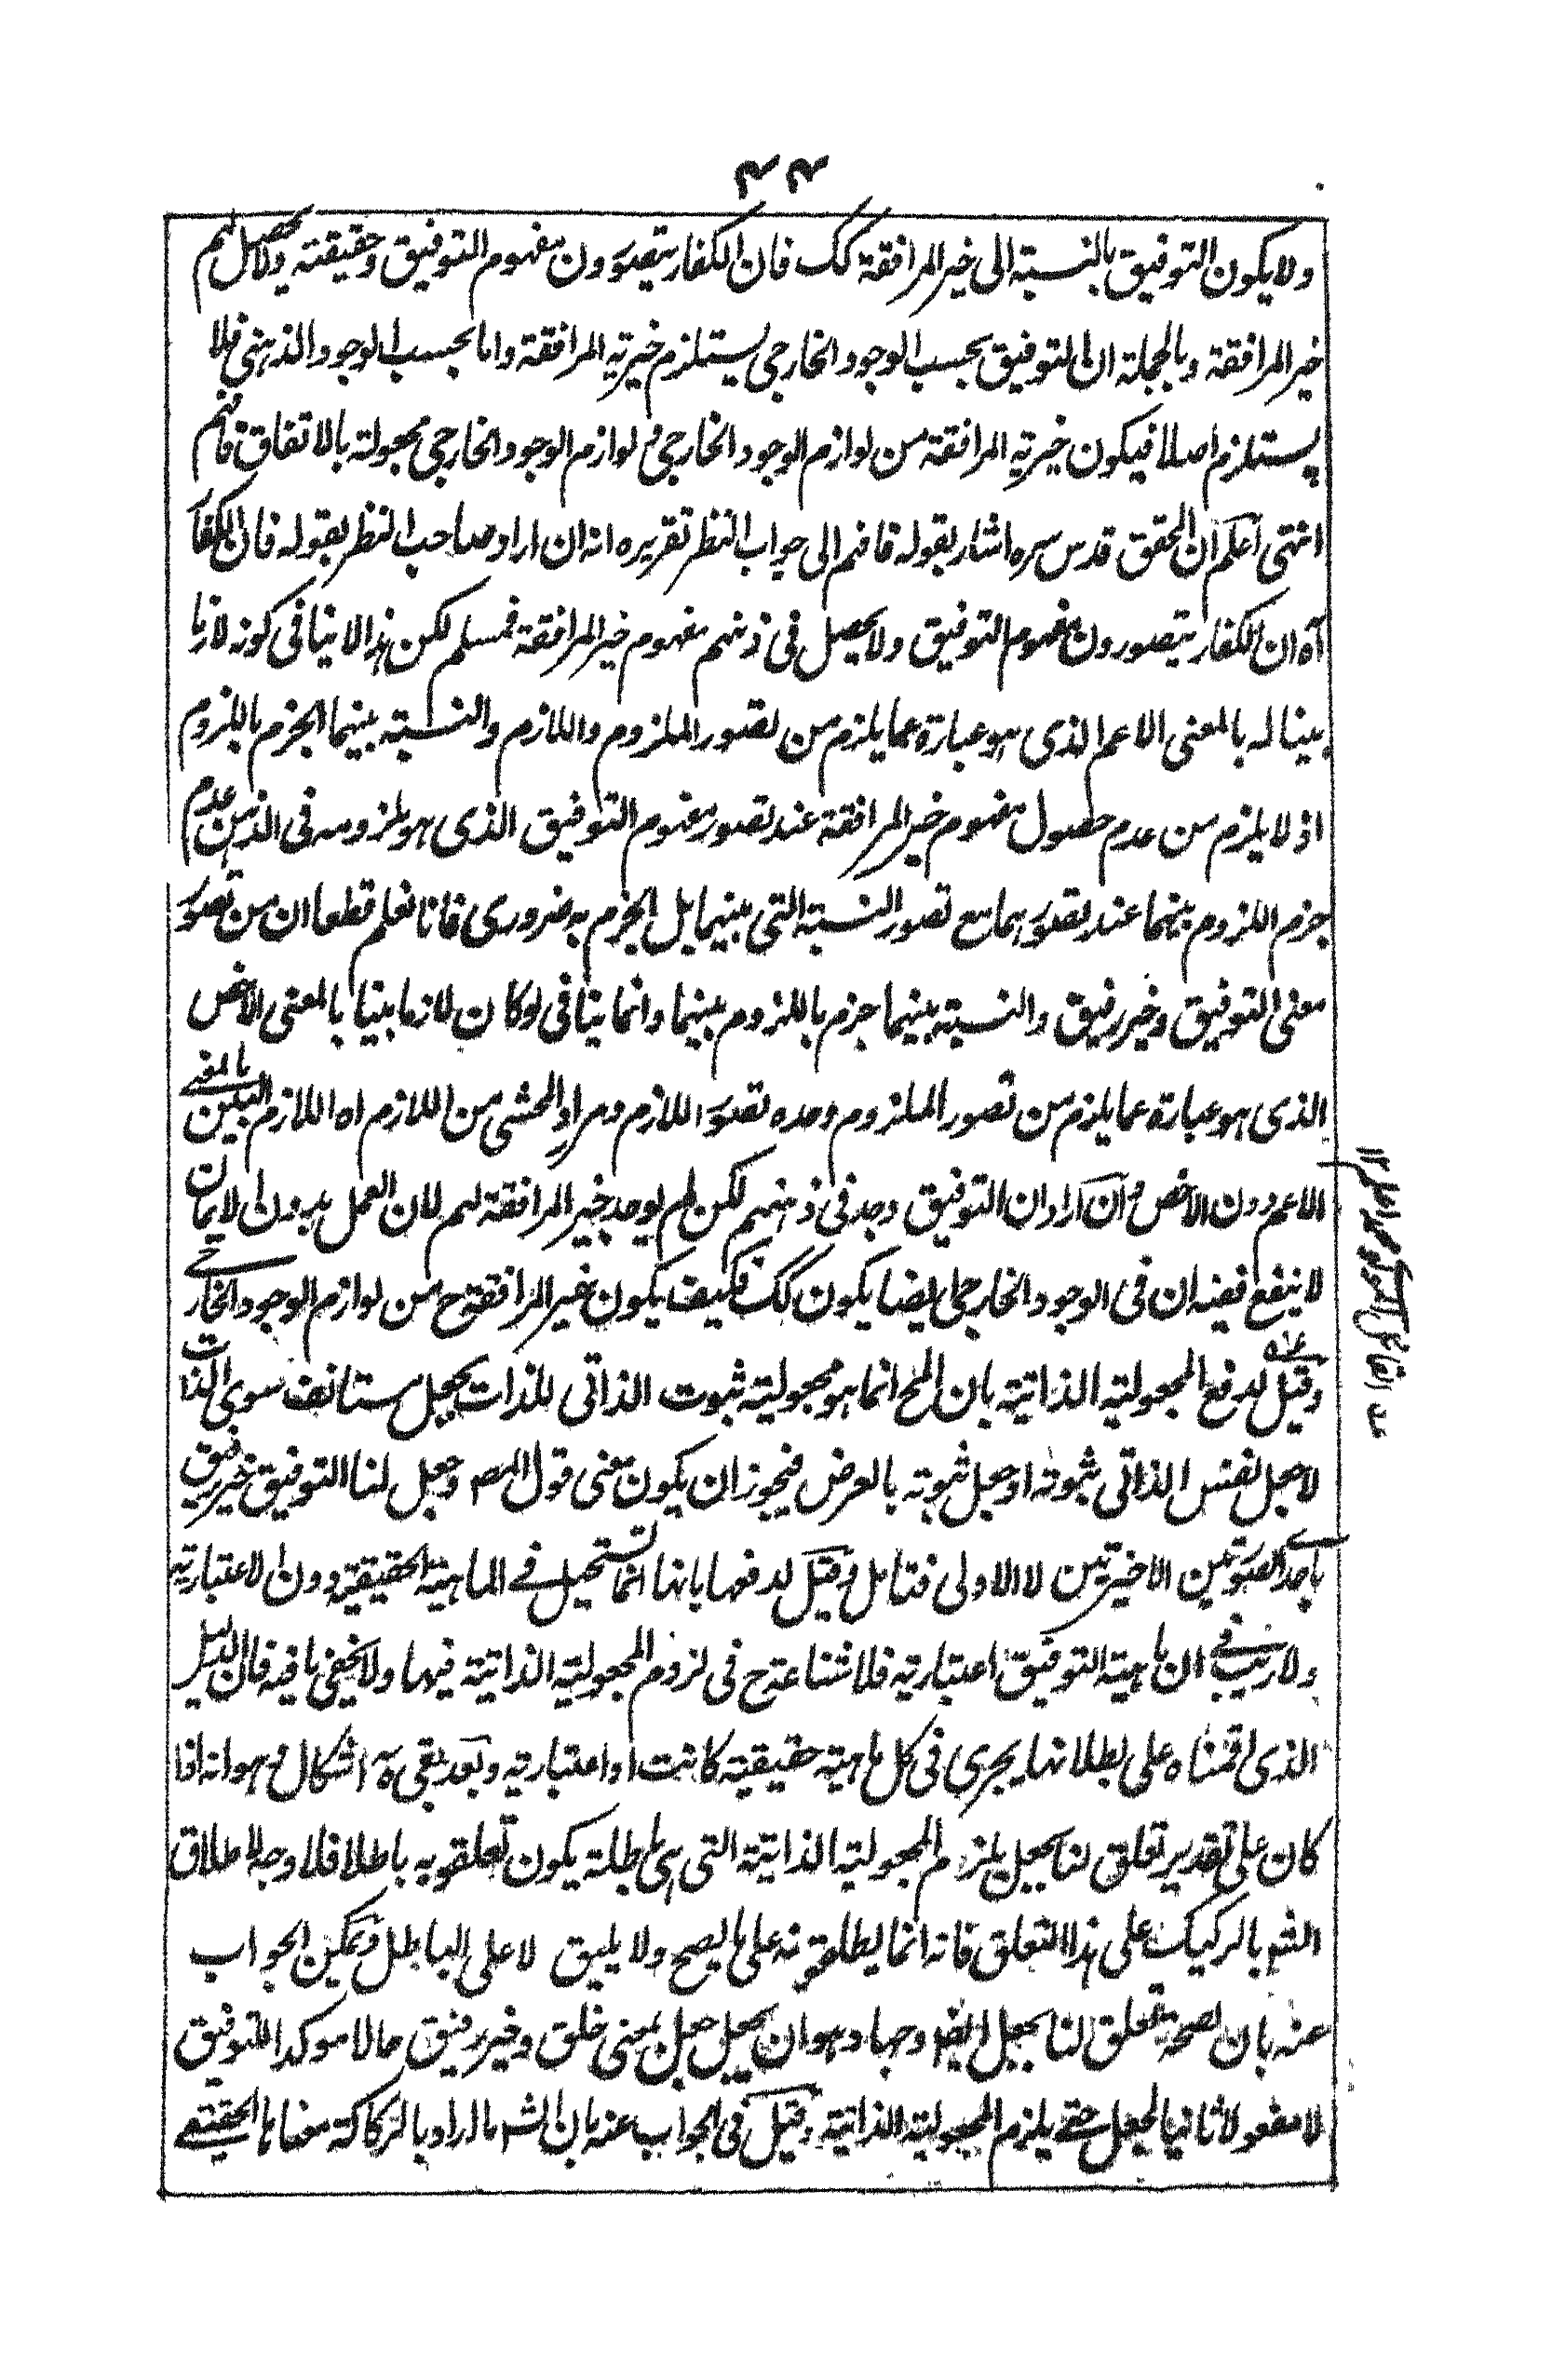 ۴۴
ولا يكون التوفيق بالنسبة الى خير المرافقة كك فان الكفار يتصورون مفهوم التوفيق وحقيقته ولا يحصل لهم
خير المرافقة وبالجملة ان التوفيق بحسب الوجود الخارجى يستلزم خيرية المرافقة واما بحسب الوجود الذهنى فلا
يستلزم اصلا فيكون خيرية المرافقة من لوازم الوجود الخارجى و لوازم الوجود الخارجى مجعولة بالاتفاق فافهم
انتهى اعلم ان المحقق قدس سره اشار بقوله فافهم الى جواب النظر تقريره انه ان اراد صاحب النظر بقوله فان الكفار
آه ان الكفار يتصورون مفهوم التوفيق ولا يحصل فى ذهنهم مفهوم خير المرافقة فمسلم لكن هذا لا ينافى كونه لازما
بينا له بالمعنى الاعم الذى هو عبارة عما يلزم من تصور الملزوم واللازم والنسبة بينهما الجزم باللزوم
اذ لا يلزم من عدم حصول مفهوم خير المرافقة عند تصور مفهوم التوفيق الذى هو ملزومه فى الذهن عدم
جزم اللزوم بينهما عند تصورهما مع تصور النسبة التى بينهما بل الجزم به ضرورى فانا نعلم قطعا ان من تصور
معنى التوفيق وخير رفيق والنسبة بينهما جزم باللزوم بينهما وانما ينافى لو كان لازما بينا بالمعنى الاخص
الذى هو عبارة عما يلزم من تصور الملزوم وحده تصور اللازم ومراد المحشى من اللازم اه اللازم البين بالمعنے
الاعم دون الاخص و ان اراد ان التوفيق وجد فى ذهنهم لكن لم يوجد خير المرافقة لهم لان العمل بدون الايمان
لا ينفع ففيه ان فى الوجود الخارجى ايضا يكون كك فكيف يكون خير المرافقة ح من لوازم الوجود الخارجے
وقيل لدفع المجعولية الذاتية بان المح انما هو مجعولية ثبوت الذاتى للذات بجعل مستانف سوى الذات
لا جعل نفس الذاتى ثبوته او جعل ثبوته بالعرض فيجوز ان يكون معنى قول المص وجعل لنا التوفيق خير رفيق
باحد الصورتين الاخيرتين لا الاولى فتامل وقيل لدفعها بانها انما تستحيل فے الماهية الحقيقية دون الاعتبارية
ولا ريب فے ان ماهية التوفيق اعتبارية فلا شناعة ح فى لزوم المجعولية الذاتية فيها ولا يخفى ما فيه فان الدليل
الذى اقمناه على بطلانها يجرى فى كل ماهية حقيقية كانت او اعتبارية وبعد بقى ههنا اشكال و هو انه اذا
كان على تقدير تعلق لنا بجعل يلزم المجعولية الذاتية التى هى باطلة يكون تعلقه به باطلا فلا وجه لاطلاق
الشم بالركيك على هذا التعلق فانه انما يطلقونه على ما يصح ولا يليق لا على الباطل ويمكن الجواب
عنه بان لصحة تعلق لنا بجعل ايضا وجها وهو ان يجعل جعل بمعنى خلق وخير رفيق حالا موكدا للتوفيق
لا مفعولا ثانيا لجعل حتے يلزم المجعولية الذاتية وقيل فى الجواب عنه بان الشم ما اراد بالركاكة معناها الحقيقے